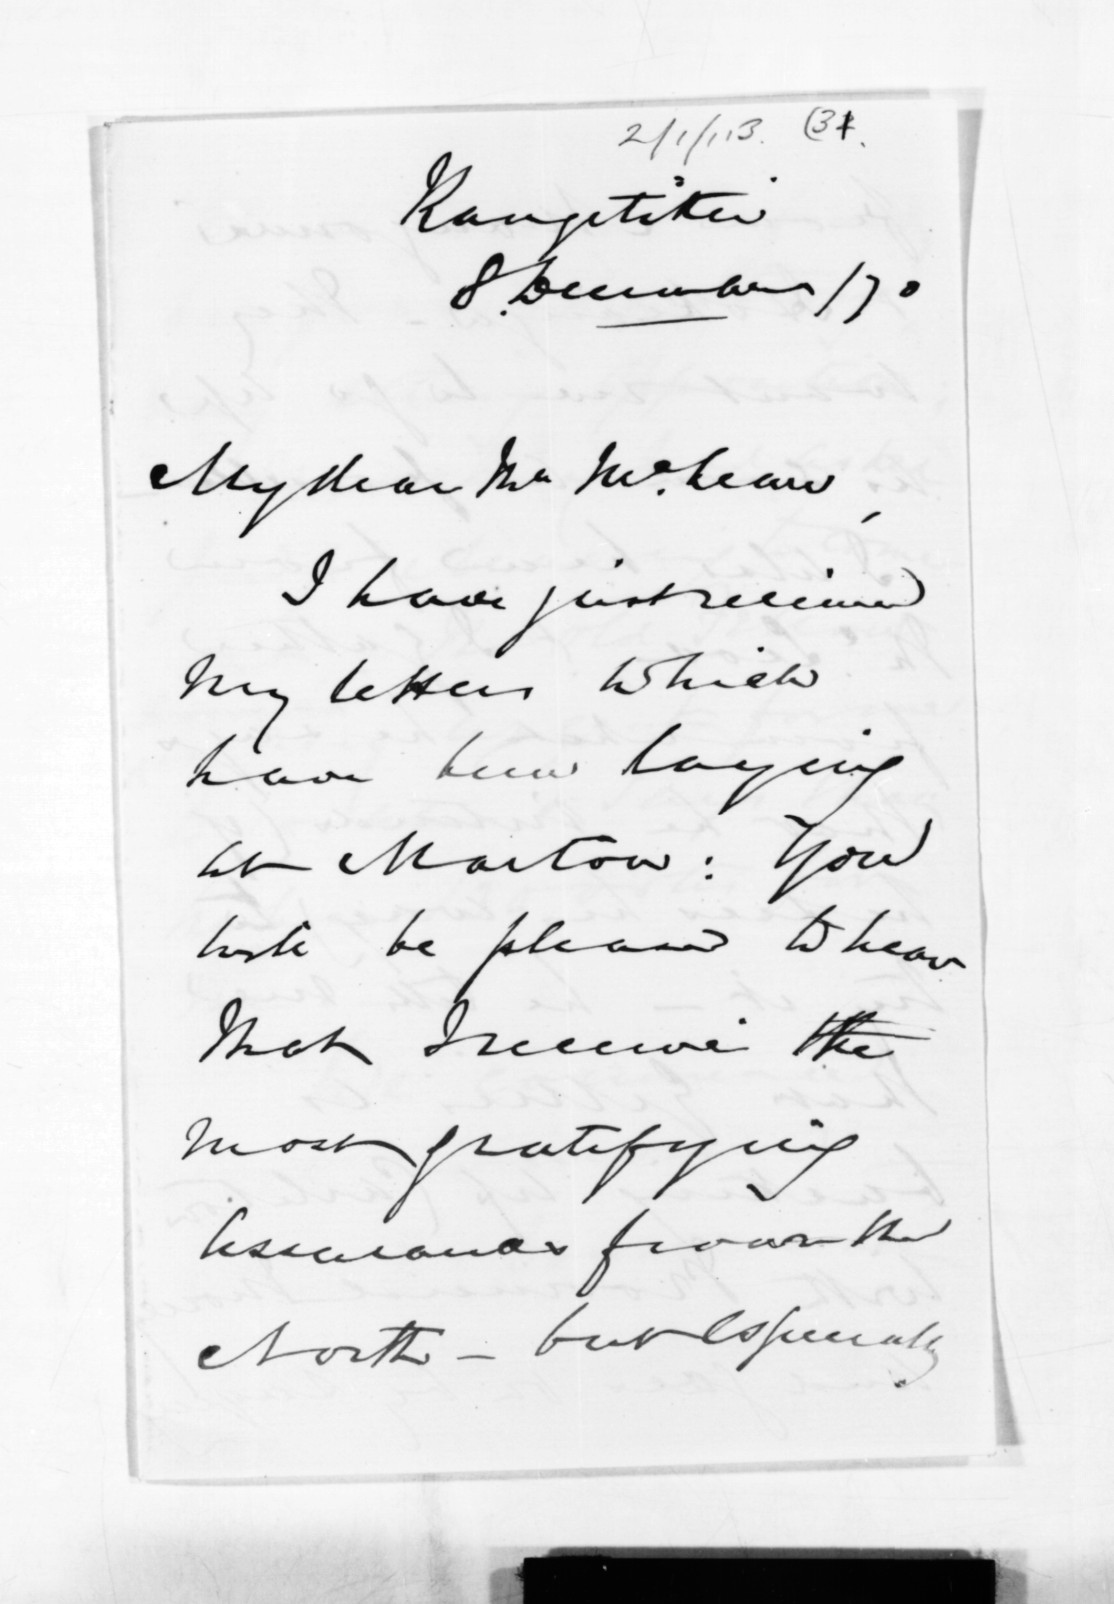 2/1/113. (31.
Rangitikei
8. December /70
My dear Mr McLean,
I have just received
my letters which
have been laying
at Marton: You
will be pleased to hear
that I receive the
most gratifying
assurances from the
North - but especially